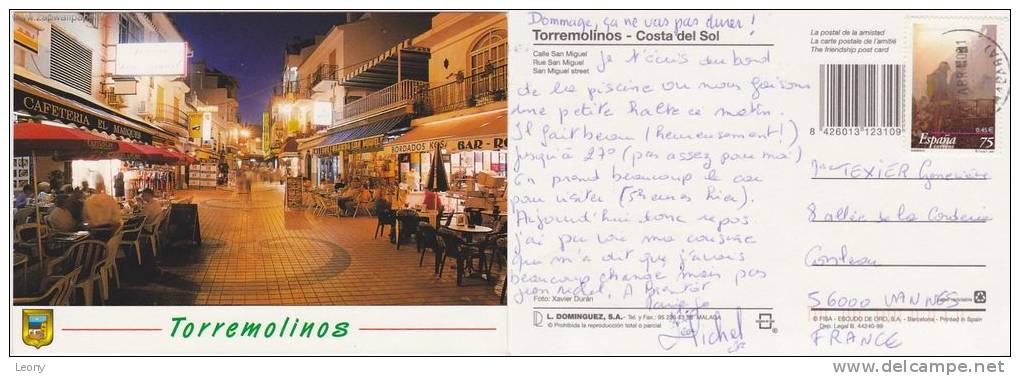 www.zapwallpaper
CAFETERIA EL MARQUES
BORDADOS
BAR-
Torremolinos
Dommage, ça ne vas pas durer !
Torremolinos - Costa del Sol
Calle San Miguel
Rue San Miguel
San Miguel street
Je t'écris du bord
de la piscine ou nous faisons
une petite halte ce matin.
Il fait beau (heureusement!)
jusqu'à 27° (pas assez pour moi)
On prend beaucoup le car
pour visiter (5 heures hier)
Aujourd'hui donc repos
j'ai pu voir ma cousine
qui m'a dit que j'avais
beaucoup changé mais pas
Jean Michel, A Bientôt
Michel
Foto: Xavier Durán
L. DOMINGUEZ, S.A. - Tel. y Fax.: MALAGA
© Prohibida la reproducción total o parcial
La postal de la amistad
La carte postale de l'amitié
The friendship post card
8 426013 123109
España
0,45 €
75
Mme TEXIER Geneviève
8 allée de la Corderie
Conleau
56000 VANNES
FRANCE
® FISA - ESCUDO DE ORO, S.A. - Barcelona - Printed in Spain
Dep. Legal B. 44240-99
Leory
delcampe.net